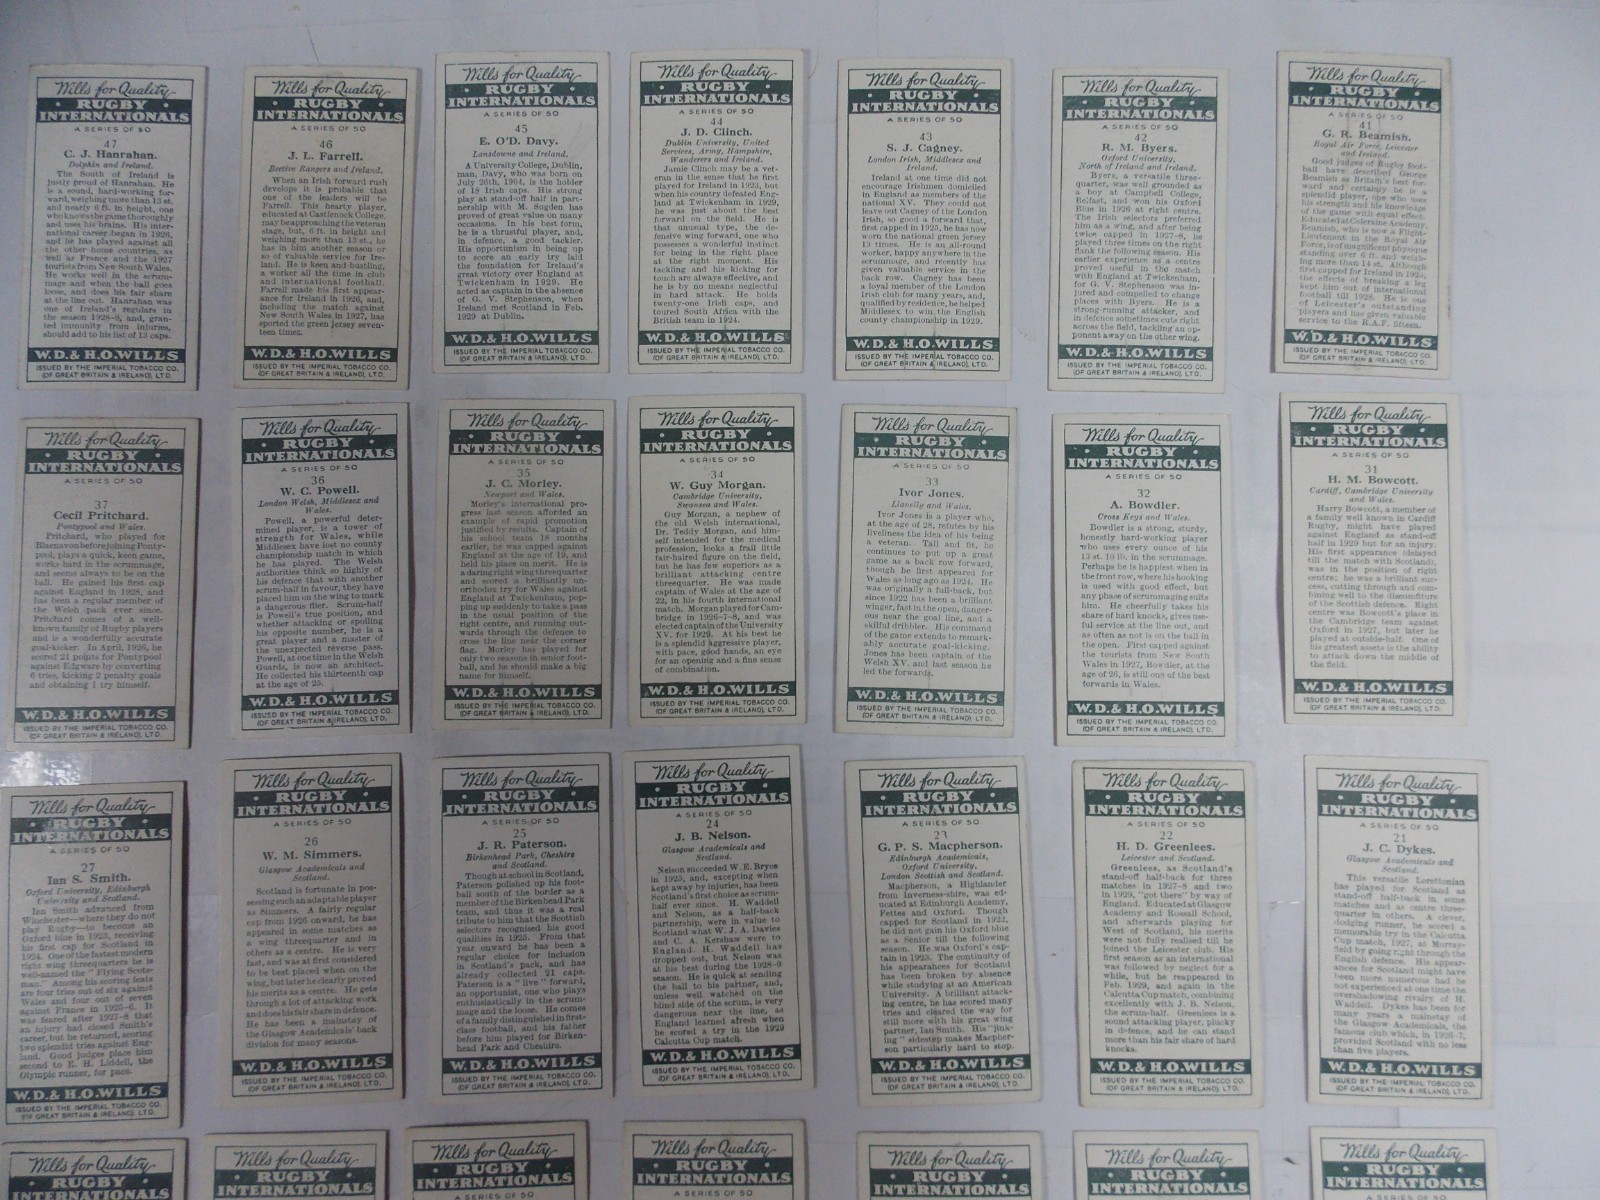 Wills for Quality
RUGBY
INTERNATIONALS
A SERIES OF 50
47
C. J. Hanrahan.
Dolphin and Ireland.
The South of Ireland is
justly proud of Hanrahan. He
is a sound, hard-working for-
ward, weighing more than 13 st.
and nearly 6 ft. in height, one
who knows the game thoroughly
and uses his brains. His inter-
national career began in 1926,
and he has played against all
the other home countries, as
well as France and the 1927
tourists from New South Wales.
He works well in the scrum-
mage and when the ball goes
loose, and does his fair share
at the line out. Hanrahan was
one of Ireland's regulars in
the season 1928-9, and, gran-
ted immunity from injuries,
should add to his list of 13 caps.
W.D. & H.O. WILLS
ISSUED BY THE IMPERIAL TOBACCO CO.
(OF GREAT BRITAIN & IRELAND), LTD.
Wills for Quality
RUGBY
INTERNATIONALS
A SERIES OF 50
46
J. L. Farrell.
Bective Rangers and Ireland.
When an Irish forward rush
develops it is probable that
one of the leaders will be
Farrell. This hearty player,
educated at Castleknock College,
may be approaching the veteran
stage, but, 6 ft. in height and
weighing more than 13 st., he
has in him another season or
so of valuable service for Ire-
land. He is keen and bustling,
a worker all the time in club
and international football.
Farrell made his first appear-
ance for Ireland in 1926, and,
including the match against
New South Wales in 1927, has
sported the green jersey seven-
teen times.
W.D. & H.O. WILLS
ISSUED BY THE IMPERIAL TOBACCO CO.
(OF GREAT BRITAIN & IRELAND), LTD.
Wills for Quality
RUGBY
INTERNATIONALS
A SERIES OF 50
45
E. O'D. Davy.
Lansdowne and Ireland.
A University College, Dublin,
man, Davy, who was born on
July 26th, 1904, is the holder
of 18 Irish caps. His strong
play at stand-off half in part-
nership with M. Sugden has
proved of great value on many
occasions. In his best form,
he is a thrustful player, and,
in defence, a good tackler.
His opportunism in being up
to score an early try laid
the foundation for Ireland's
great victory over England at
Twickenham in 1929. He
acted as captain in the absence
of G. V. Stephenson, when
Ireland met Scotland in Feb.
1929 at Dublin.
W.D. & H.O. WILLS
ISSUED BY THE IMPERIAL TOBACCO CO.
(OF GREAT BRITAIN & IRELAND), LTD.
Wills for Quality
RUGBY
INTERNATIONALS
A SERIES OF 50
44
J. D. Clinch.
Dublin University, United
Services, Army, Hampshire,
Wanderers and Ireland.
Jamie Clinch may be a vet-
eran in the sense that he first
played for Ireland in 1923, but
when his country defeated Eng-
land at Twickenham in 1929,
he was just about the best
forward on the field. He is
that unusual type, the de-
fensive wing forward, one who
possesses a wonderful instinct
for being in the right place
at the right moment. His
tackling and his kicking for
touch are always effective, and
he is by no means neglectful
in hard attack. He holds
twenty-one Irish caps, and
toured South Africa with the
British team in 1924.
W.D. & H.O. WILLS
ISSUED BY THE IMPERIAL TOBACCO CO.
(OF GREAT BRITAIN & IRELAND), LTD.
Wills for Quality
RUGBY
INTERNATIONALS
A SERIES OF 50
43
S. J. Cagney.
London Irish, Middlesex and
Ireland.
Ireland at one time did not
encourage Irishmen domiciled
in England as members of the
national XV. They could not
leave out Cagney of the London
Irish, so good a forward that,
first capped in 1925, he has now
worn the national green jersey
13 times. He is an all-round
worker, happy anywhere in the
scrummage, and recently has
given valuable service in the
back row. Cagney has been
a loyal member of the London
Irish club for many years, and,
qualified by residence, he helped
Middlesex to win the English
county championship in 1929.
W.D. & H.O. WILLS
ISSUED BY THE IMPERIAL TOBACCO CO.
(OF GREAT BRITAIN & IRELAND), LTD.
Wills for Quality
RUGBY
INTERNATIONALS
A SERIES OF 50
42
R. M. Byers.
Oxford University,
North of Ireland and Ireland.
Byers, a versatile three-
quarter, was well grounded as
a boy at Campbell College,
Belfast, and won his Oxford
Blue in 1926 at right centre.
The Irish selectors preferred
him as a wing, and after being
twice capped in 1927-8, he
played three times on the right
flank the following season. His
earlier experience as a centre
proved useful in the match
with England at Twickenham,
for G. V. Stephenson was in-
jured and compelled to change
places with Byers. He is a
strong-running attacker, and
in defence sometimes cuts right
across the field, tackling an op-
ponent away on the other wing.
W.D. & H.O. WILLS
ISSUED BY THE IMPERIAL TOBACCO CO.
(OF GREAT BRITAIN & IRELAND), LTD.
Wills for Quality
RUGBY
INTERNATIONALS
A SERIES OF 50
41
G. R. Beamish.
Royal Air Force, Leicester
and Ireland.
Good judges of Rugby foot-
ball have described George
Beamish as Britain's best for-
ward and certainly he is a
splendid player, one who uses
his strength and his knowledge
of the game with equal effect.
Educated at Coleraine Academy,
Beamish, who is now a Flight-
Lieutenant in the Royal Air
Force, is of magnificent physique
standing over 6 ft. and weigh-
ing more than 14 st. Although
first capped for Ireland in 1925,
the effects of breaking a leg
kept him out of international
football till 1928. He is one
of Leicester's outstanding
players and has given valuable
service to the R.A.F. fifteen.
W.D. & H.O. WILLS
ISSUED BY THE IMPERIAL TOBACCO CO.
(OF GREAT BRITAIN & IRELAND), LTD.
Wills for Quality
RUGBY
INTERNATIONALS
A SERIES OF 50
37
Cecil Pritchard.
Pontypool and Wales.
Pritchard, who played for
Blaenavon before joining Ponty-
pool, plays a quick, keen game,
works hard in the scrummage,
and seems always to be on the
ball. He gained his first cap
against England in 1928, and
has been a regular member of
the Welsh pack ever since.
Pritchard comes of a well-
known family of Rugby players
and is a wonderfully accurate
goal-kicker. In April, 1926, he
scored 21 points for Pontypool
against Edgware by converting
6 tries, kicking 2 penalty goals
and obtaining 1 try himself.
W.D. & H.O. WILLS
ISSUED BY THE IMPERIAL TOBACCO CO.
(OF GREAT BRITAIN & IRELAND), LTD.
Wills for Quality
RUGBY
INTERNATIONALS
A SERIES OF 50
36
W. C. Powell.
London Welsh, Middlesex and
Wales.
Powell, a powerful deter-
mined player, is a tower of
strength for Wales, while
Middlesex have lost no county
championship match in which
he has played. The Welsh
authorities think so highly of
his defence that with another
scrum-half in favour, they have
placed him on the wing to mark
a dangerous flier. Scrum-half
is Powell's true position, and
whether attacking or spoiling
his opposite number, he is a
great player and a master of
the unexpected reverse pass.
Powell, at one time in the Welsh
Guards, is now an architect.
He collected his thirteenth cap
at the age of 25.
W.D. & H.O. WILLS
ISSUED BY THE IMPERIAL TOBACCO CO.
(OF GREAT BRITAIN & IRELAND), LTD.
Wills for Quality
RUGBY
INTERNATIONALS
A SERIES OF 50
35
J. C. Morley.
Newport and Wales.
Morley's international pro-
gress last season afforded an
example of rapid promotion
justified by results. Captain of
his school team 18 months
earlier, he was capped against
England at the age of 19, and
held his place on merit. He is
a daring right wing threequarter
and scored a brilliantly un-
orthodox try for Wales against
England at Twickenham, pop-
ping up suddenly to take a pass
in the usual position of the
right centre, and running out-
wards through the defence to
cross the line near the corner
flag. Morley has played for
only two seasons in senior foot-
ball, and he should make a big
name for himself.
W.D. & H.O. WILLS
ISSUED BY THE IMPERIAL TOBACCO CO.
(OF GREAT BRITAIN & IRELAND), LTD.
Wills for Quality
RUGBY
INTERNATIONALS
A SERIES OF 50
34
W. Guy Morgan.
Cambridge University,
Swansea and Wales.
Guy Morgan, a nephew of
the old Welsh international,
Dr. Teddy Morgan, and him-
self intended for the medical
profession, looks a frail little
fair-haired figure on the field,
but he has few superiors as a
brilliant attacking centre
threequarter. He was made
captain of Wales at the age of
22, in his fourth international
match. Morgan played for Cam-
bridge in 1926-7-8, and was
elected captain of the University
XV. for 1929. At his best he
is a splendid aggressive player,
with pace, good hands, an eye
for an opening and a fine sense
of combination.
W.D. & H.O. WILLS
ISSUED BY THE IMPERIAL TOBACCO CO.
(OF GREAT BRITAIN & IRELAND), LTD.
Wills for Quality
RUGBY
INTERNATIONALS
A SERIES OF 50
33
Ivor Jones.
Llanelly and Wales.
Ivor Jones is a player who,
at the age of 28, refutes by his
liveliness the idea of his being
a veteran. Tall and fit, he
continues to put up a great
game as a back row forward,
though he first appeared for
Wales as long ago as 1924. He
was originally a full-back, but
since 1922 has been a brilliant
winger, fast in the open, danger-
ous near the goal line, and a
skilful dribbler. His command
of the game extends to remark-
ably accurate goal-kicking.
Jones has been captain of the
Welsh XV. and last season he
led the forwards.
W.D. & H.O. WILLS
ISSUED BY THE IMPERIAL TOBACCO CO.
(OF GREAT BRITAIN & IRELAND), LTD.
Wills for Quality
RUGBY
INTERNATIONALS
A SERIES OF 50
32
A. Bowdler.
Cross Keys and Wales.
Bowdler is a strong, sturdy,
honestly hard-working player
who uses every ounce of his
13 st. 10 lb. in the scrummage.
Perhaps he is happiest when in
the front row, where his hooking
is used with good effect, but
any phase of scrummaging suits
him. He cheerfully takes his
share of hard knocks, gives use-
ful service at the line out, and
as often as not is on the ball in
the open. First capped against
the tourists from New South
Wales in 1927, Bowdler, at the
age of 26, is still one of the best
forwards in Wales.
W.D. & H.O. WILLS
ISSUED BY THE IMPERIAL TOBACCO CO.
(OF GREAT BRITAIN & IRELAND), LTD.
Wills for Quality
RUGBY
INTERNATIONALS
A SERIES OF 50
31
H. M. Bowcott.
Cardiff, Cambridge University
and Wales.
Harry Bowcott, a member of
a family well known in Cardiff
Rugby, might have played
against England as stand-off
half in 1929 but for an injury.
His first appearance (delayed
till the match with Scotland),
was in the position of right
centre; he was a brilliant suc-
cess, cutting through and com-
bining well to the discomfiture
of the Scottish defence. Right
centre was Bowcott's place in
the Cambridge team against
Oxford in 1927, but later he
played at outside-half. One of
his greatest assets is the ability
to attack down the middle of
the field.
W.D. & H.O. WILLS
ISSUED BY THE IMPERIAL TOBACCO CO.
(OF GREAT BRITAIN & IRELAND), LTD.
Wills for Quality
RUGBY
INTERNATIONALS
A SERIES OF 50
27
Ian S. Smith.
Oxford University, Edinburgh
University and Scotland.
Ian Smith advanced from
Winchester—where they do not
play Rugby—to become an
Oxford blue in 1923, receiving
his first cap for Scotland in
1924. One of the fastest modern
right wing threequarters he is
well-named the "Flying Scots-
man." Among his scoring feats
are four tries out of six against
Wales and four out of seven
against France in 1925-6. It
was feared after 1927-8 that
an injury had closed Smith's
career, but he returned, scoring
two splendid tries against Eng-
land. Good judges place him
second to E. H. Liddell, the
Olympic runner, for pace.
W.D. & H.O. WILLS
ISSUED BY THE IMPERIAL TOBACCO CO.
(OF GREAT BRITAIN & IRELAND), LTD.
Wills for Quality
RUGBY
INTERNATIONALS
A SERIES OF 50
26
W. M. Simmers.
Glasgow Academicals and
Scotland.
Scotland is fortunate in pos-
sessing such an adaptable player
as Simmers. A fairly regular
cap from 1926 onward, he has
appeared in some matches as
a wing threequarter and in
others as a centre. He is very
fast, and was at first considered
to be best placed when on the
wing, but later he clearly proved
his merits as a centre. He gets
through a lot of attacking work
and does his fair share in defence.
He has been a mainstay of
the Glasgow Academicals' back
division for many seasons.
W.D. & H.O. WILLS
ISSUED BY THE IMPERIAL TOBACCO CO.
(OF GREAT BRITAIN & IRELAND), LTD.
Wills for Quality
RUGBY
INTERNATIONALS
A SERIES OF 50
25
J. R. Paterson.
Birkenhead Park, Cheshire
and Scotland.
Though at school in Scotland,
Paterson polished up his foot-
ball south of the border as a
member of the Birkenhead Park
team, and thus it was a real
tribute to him that the Scottish
selectors recognised his good
qualities in 1925. From that
year onward he has been a
regular choice for inclusion
in Scotland's pack, and has
already collected 21 caps.
Paterson is a "live" forward,
an opportunist, one who plays
enthusiastically in the scrum-
mage and the loose. He comes
of a family distinguished in first-
class football, and his father
before him played for Birken-
head Park and Cheshire.
W.D. & H.O. WILLS
ISSUED BY THE IMPERIAL TOBACCO CO.
(OF GREAT BRITAIN & IRELAND), LTD.
Wills for Quality
RUGBY
INTERNATIONALS
A SERIES OF 50
24
J. B. Nelson.
Glasgow Academicals and
Scotland.
Nelson succeeded W. E. Bryce
in 1925, and, excepting when
kept away by injuries, has been
Scotland's first choice as scrum-
half ever since. H. Waddell
and Nelson, as a half-back
partnership, were in value to
Scotland what W. J. A. Davies
and C. A. Kershaw were to
England. H. Waddell has
dropped out, but Nelson was
at his best during the 1928-9
season. He is quick at sending
the ball to his partner, and,
unless well watched on the
blind side of the scrum, is very
dangerous near the line, as
England learned afresh when
he scored a try in the 1929
Calcutta Cup match.
W.D. & H.O. WILLS
ISSUED BY THE IMPERIAL TOBACCO CO.
(OF GREAT BRITAIN & IRELAND), LTD.
Wills for Quality
RUGBY
INTERNATIONALS
A SERIES OF 50
23
G. P. S. Macpherson.
Edinburgh Academicals,
Oxford University,
London Scottish and Scotland.
Macpherson, a Highlander
from Inverness-shire, was ed-
ucated at Edinburgh Academy,
Fettes and Oxford. Though
capped for Scotland in 1922,
he did not gain his Oxford blue
as a Senior till the following
season. He was Oxford's cap-
tain in 1923. The continuity of
his appearances for Scotland has
been broken by absence
while studying at an American
University. A brilliant attack-
ing centre, he has scored many
tries and cleared the way for
still more with his great wing
partner, Ian Smith. His "jink-
ing" sidestep makes Macpher-
son particularly hard to stop.
W.D. & H.O. WILLS
ISSUED BY THE IMPERIAL TOBACCO CO.
(OF GREAT BRITAIN & IRELAND), LTD.
Wills for Quality
RUGBY
INTERNATIONALS
A SERIES OF 50
22
H. D. Greenlees.
Leicester and Scotland.
Greenlees, as Scotland's
stand-off half-back for three
matches in 1927-8 and two
in 1929, "got there" by way of
England. Educated at Glasgow
Academy and Rossall School,
and afterwards playing for
West of Scotland, his merits
were not fully realised till he
joined the Leicester club. His
first season as an international
was followed by neglect for a
while, but he reappeared in
Feb. 1929, and again in the
Calcutta Cup match, combining
excellently with J. B. Nelson,
the scrum-half. Greenlees is a
sound attacking player, plucky
in defence, and he can stand
more than his fair share of hard
knocks.
W.D. & H.O. WILLS
ISSUED BY THE IMPERIAL TOBACCO CO.
(OF GREAT BRITAIN & IRELAND), LTD.
Wills for Quality
RUGBY
INTERNATIONALS
A SERIES OF 50
21
J. C. Dykes.
Glasgow Academicals and
Scotland.
This versatile Lorettonian
has played for Scotland as
stand-off half-back in some
matches and as centre three-
quarter in others. A clever,
dodging runner, he scored a
memorable try in the Calcutta
Cup match, 1927, at Murray-
field by going right through the
English defence. His appear-
ances for Scotland might have
been more numerous had he
not experienced at one time the
overshadowing rivalry of H.
Waddell. Dykes has been for
many years a mainstay of
the Glasgow Academicals, the
famous club which, in 1926-7,
provided Scotland with no less
than five players.
W.D. & H.O. WILLS
ISSUED BY THE IMPERIAL TOBACCO CO.
(OF GREAT BRITAIN & IRELAND), LTD.
Wills for Quality
RUGBY
INTERNATIONALS
Wills for Quality
RUGBY
INTERNATIONALS
Wills for Quality
RUGBY
INTERNATIONALS
A SERIES OF 50
Wills for Quality
RUGBY
INTERNATIONALS
A SERIES OF 50
Wills for Quality
RUGBY
INTERNATIONALS
Wills for Quality
RUGBY
INTERNATIONALS
Wills for Quality
RUGBY
INTERNATIONALS
A SERIES OF 50